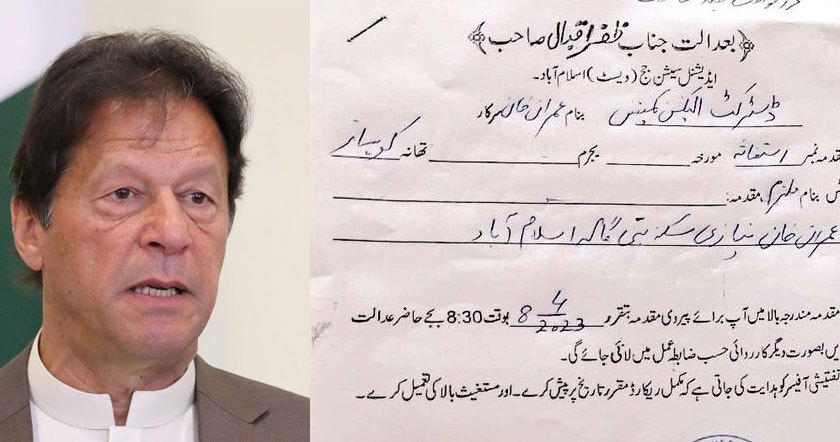 بعدالت جناب ظفر اقبال صاحب
ایڈیشنل سیشن جج (ویسٹ) اسلام آباد۔
ڈسٹرکٹ الیکشن کمیشن بنام عمران خان سرکار
مقدمہ نمبر استغاثہ مورخہ بجرم تھانہ کوہسار
بنام ملزم مقدمہ:
عمران خان نیازی سکنہ بنی گالہ اسلام آباد
مقدمہ مندرجہ بالا میں آپ برائے پیروی مقدمہ بتقرر 8 4 2023 بوقت 8:30 بجے حاضر عدالت
بصورت دیگر کارروائی حسب ضابطہ عمل میں لائی جائے گی۔
تفتیشی آفیسر کو ہدایت کی جاتی ہے کہ مکمل ریکارڈ مقرر تاریخ پر پیش کرے۔ اور مستغیث بالا کی تعمیل کرے۔